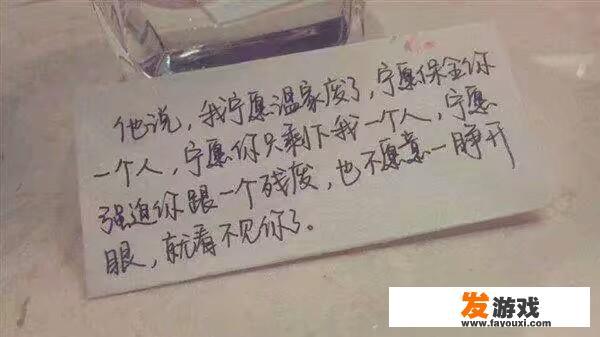 他说，我宁愿温家废了，宁愿保全你
一个人，宁愿你只剩下我一个人，宁愿
强迫你跟一个残废，也不愿意一睁开
眼，就看不见你了。
发游戏
www.fayouxi.com